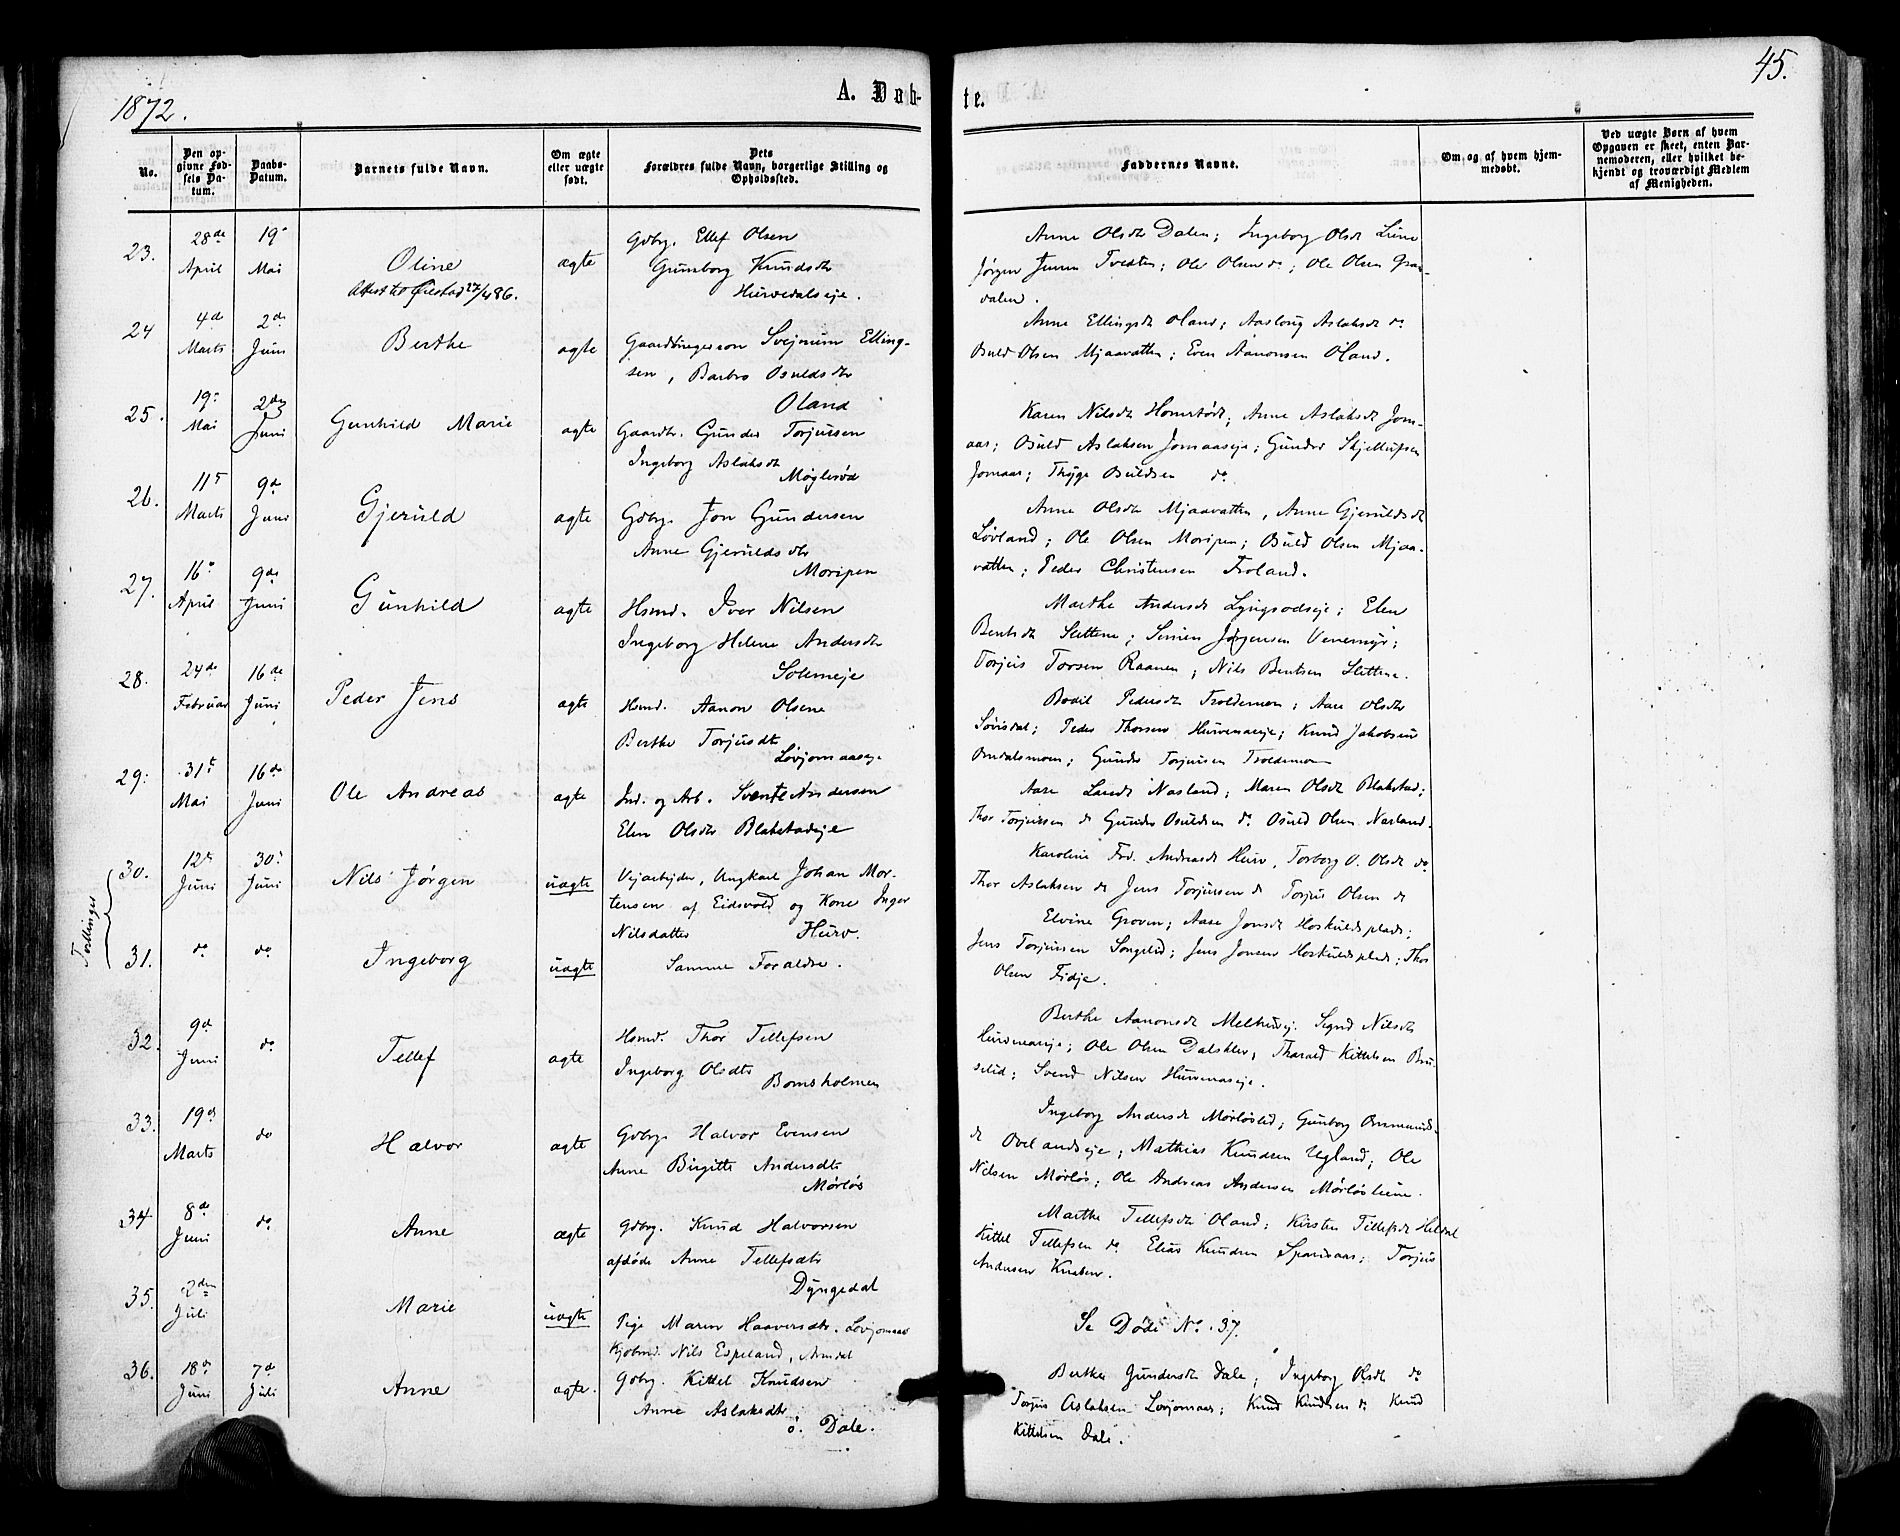 1872.
A. Døb-
te.
45.
No.
Den op-
givne Fød-
sels Da-
tum.
Daabs-
Datum.
Barnets fulde Navn.
Om ægte
eller uægte
født.
Dets
Forældres fulde Navn, borgerlige Stilling og
Opholdssted.
Faddernes Navne.
Om og af hvem hjem-
medøbt.
Ved uægte Børn af hvem
Opgaven er skeet, enten Bar-
nemoderen, eller hvilket be-
kjendt og troværdigt Medlem
af Menigheden.
23. 28de April 19 Mai Oline ægte
Gdbr. Ellef Olsen
Gunborg Knudsdtr
Hurvedalseje.
Anne Olsdtr Dalen; Ingeborg Olsdt
Jørgen Jensen Tvedten; Ole Olsen do; Ole Olsen
dalen.
24 4de Marts 2de Juni Berthe ægte
Gaardbrugerson Svejnum Elling-
sen, Barbro Osuldsdtr
Oland
Anne Ellingsdt Oland; Aasloug Aslaksdt do
Osuld Olsen Mjaavatten; Even Aanonsen Oland.
25. 19 Mai 2den Juni Gunhild Marie ægte
Gaardbr. Gunder Torjussen
Ingeborg Aslaksdt
Møglesød
Karen Nilsdt; Anne Aslaksdt Jom-
aas; Osuld Aslaksen Jomaaseje; Gunder
Jomaas; Thyge Osuldsen do
26. 11te Marts 9de Juni Gjeruld ægte
Gdbr. Jon Gundersen
Anne Gjeruldsdtr
Moripen
Anne Olsdt Mjaavatten, Anne Gjeruldsdt
Løvland; Ole Olsen Moripen; Osuld Olsen Mjaa-
vatten; Peder Christensen Froland.
27. 16 April 9de Juni Gunhild ægte
Hsmd. Iver Nilsen
Ingeborg Helene Andersdtr
Solemeje
Marthe Andersdt; Elen
Bentsdt Slettene; Simen Jørgensen Venemyr;
Torjus Torsen Raanen; Nils Bentsen Slettene.
28. 24de Februar 16de Juni Peder Jens ægte
Hsmd. Aanon Olsene
Berthe Torjusdt
Løvjomaaseje
Bodil Pedersdt Troldemoen; Aase Olsdtr
Sørisdal; Peder Thorsen Hurvenaseje; Knud Jakobsen
Omdalsmoen; Gunder Torjussen Troldemoen
29. 31te Mai 16de Juni Ole Andreas ægte
Ind. og Arb. Svente Andersen
Elen Olsdtr Blakstadeje
Aase Larsdt Nasland; Maren Olsdt Blakstad;
Thor Torjussen do Gunder Osuldsen do Osuld Olsen Nasland.
Tvillinger
30. 12te Juni 30 Juni Nils Jørgen uægte
Vejarbejder, Ungkarl Johan Mor-
tensen af Eidsvold og Kone Inger
Nilsdatter Hurv.
Karoline Frd. Andreasdt Hurv, Torborg O. Olsdt do
Thor Aslaksen do Jens Torjussen do Torjus Olsen do
31. do do Ingeborg uægte
Samme Forældre.
Elvine Groven; Aase Jonsdt Hoskuldsplads;
Jens Torjussen Songelid; Jens Jonsen Hoskuldsplads; Thor
Olsen Fidje.
32. 9de Juni do Tellef ægte
Hsmd. Thor Tellefsen
Ingeborg Olsdtr
Bomsholmen
Berthe Aanonsdt Signe Nilsdtr
Hurvenaseje; Ole Olsen Dalsklev; Tharald Kittelsen
Svend Nilsen Hurvenaseje.
33. 19de Marts do Halvor ægte
Gdbr. Halvor Evensen
Anne Birgitte Andersdtr
Mørløs
Ingeborg Andersdt; Gunborg Omunds-
dt Ovelandseje; Mathias Knudsen Ugland; Ole
Nilsen Mørløs; Ole Andreas Andersen
34 8de Juni do Anne ægte
Gdbr. Knud Halvorsen
afdøde Anne Tellefsdtr
Dyngedal
Marthe Tellefsdtr Oland; Kirsten Tellefsdt Heldal
Kittel Tellefsen do Elias Knudsen; Torjus
Andersen
35. 2den Juli Marie uægte
Pige Maren Haaversdtr. Løvjomaas
Kjøbmd. Nils Espeland, Arendal
Se Døde No. 37.
36. 18de Juni 7de Juli Anne ægte.
Gdbr. Kittel Knudsen
Anne Aslaksdtr
ø. Dale.
Berthe Gundersdt Dale; Ingeborg Olsdt do
Torjus Aslaksen Løvjomaas; Knud Knudsen do Knud
Kittelsen Dale.